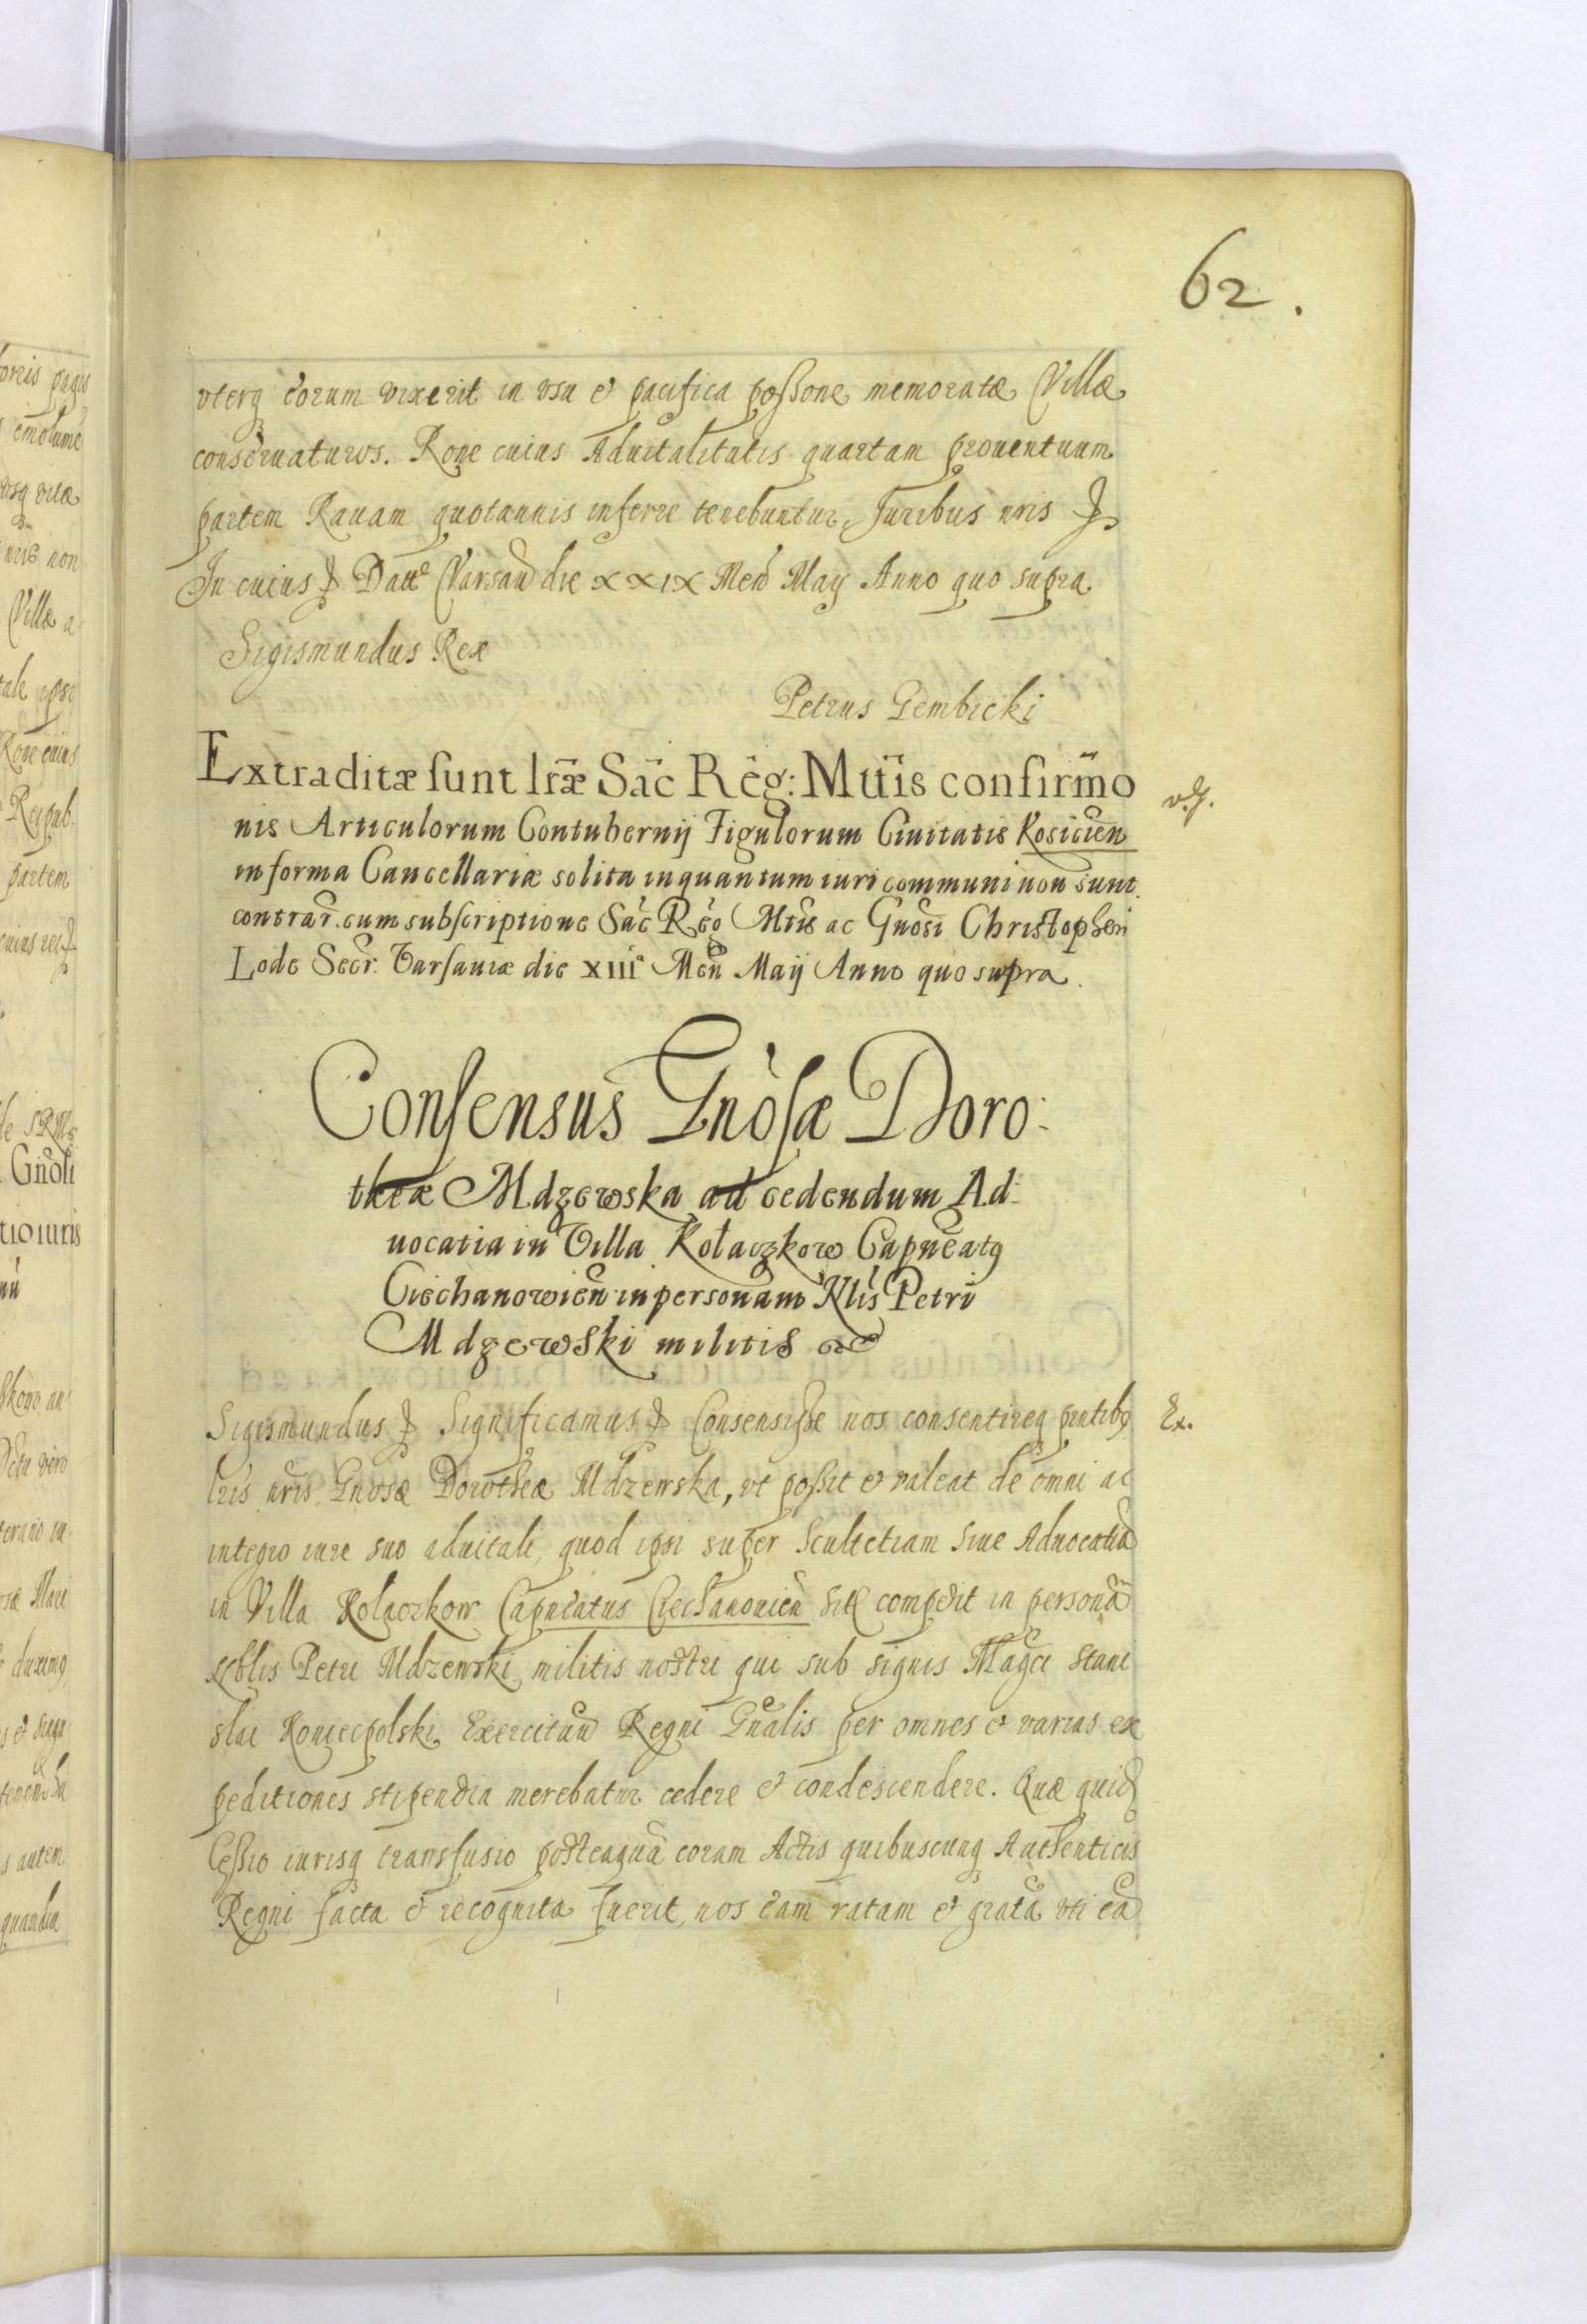 62.
vterq eorum vixerit in vsu & pacifica possone memoratæ Villæ
conseruaturos. Rone cuius Aduitalitatis quartam prouentuum
partem Rauam quotannis inferre tenebuntur, Juribus nris
In cuius Datt Varsau die XXIX Men Maij Anno quo supra
Sigismundus Rex
Petrus Gembicki
Extraditæ sunt lræ Sac Reg: Mttis confirmo
nis Articulorum Contubernij Figulorum Ciuitatis Kosicien
in forma Cancellariæ solita inquantum iuri communi non sunt
contrar. cum subscriptione Sac Reg Mtis ac Gnosi Christopheri
Lode Secr. Varsauiæ die XIII Men Maij Anno quo supra.
Consensus Gnosæ Doro:
theæ Mdzewska ad cedendum Ad:
uocatia in Villa Kołaczkow Capneatg
Ciechanowien in personam Nlis Petri
Mdzewski militis
Sigismundus Significamus Consensisse nos consentireq pntibg
lris nris Gnosæ Dorotheæ Mdzewska, vt possit & valeat de omni ac
integro iure suo aduitali, quod ipsi super Scultetiam siue Aduocatia
in Villa Kołaczkow Capneatus Ciechanouien sit competit in persona
Nobilis Petri Mdzewski militis nostri qui sub signis Magci Stani
slai Koniecpolski Exercituu Regni Gnalis per omnes & varias ex
peditiones stipendia merebatur cedere & condescendere. Quæ quid
Cessio iurisq transfusio postea qua coram Actis quibuscunq Authenticis
Regni facta & recognita fuerit, nos eam ratam & grata vti ea
Ex.